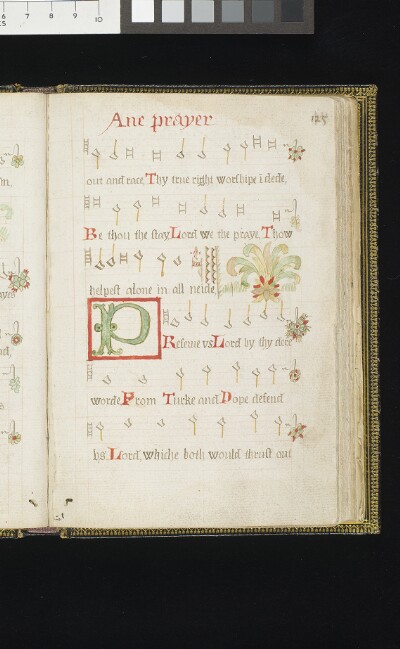 6 7 8 9 10
Ane prayer
125
out and race, Thy true right worshipe i dede,
Be thou the stay Lord we the praye, Thow
helpest alone in all neide
PReserue vs Lord by thy dere
worde From Turke and Pope defend
hs Lord, whiche both would thrust out